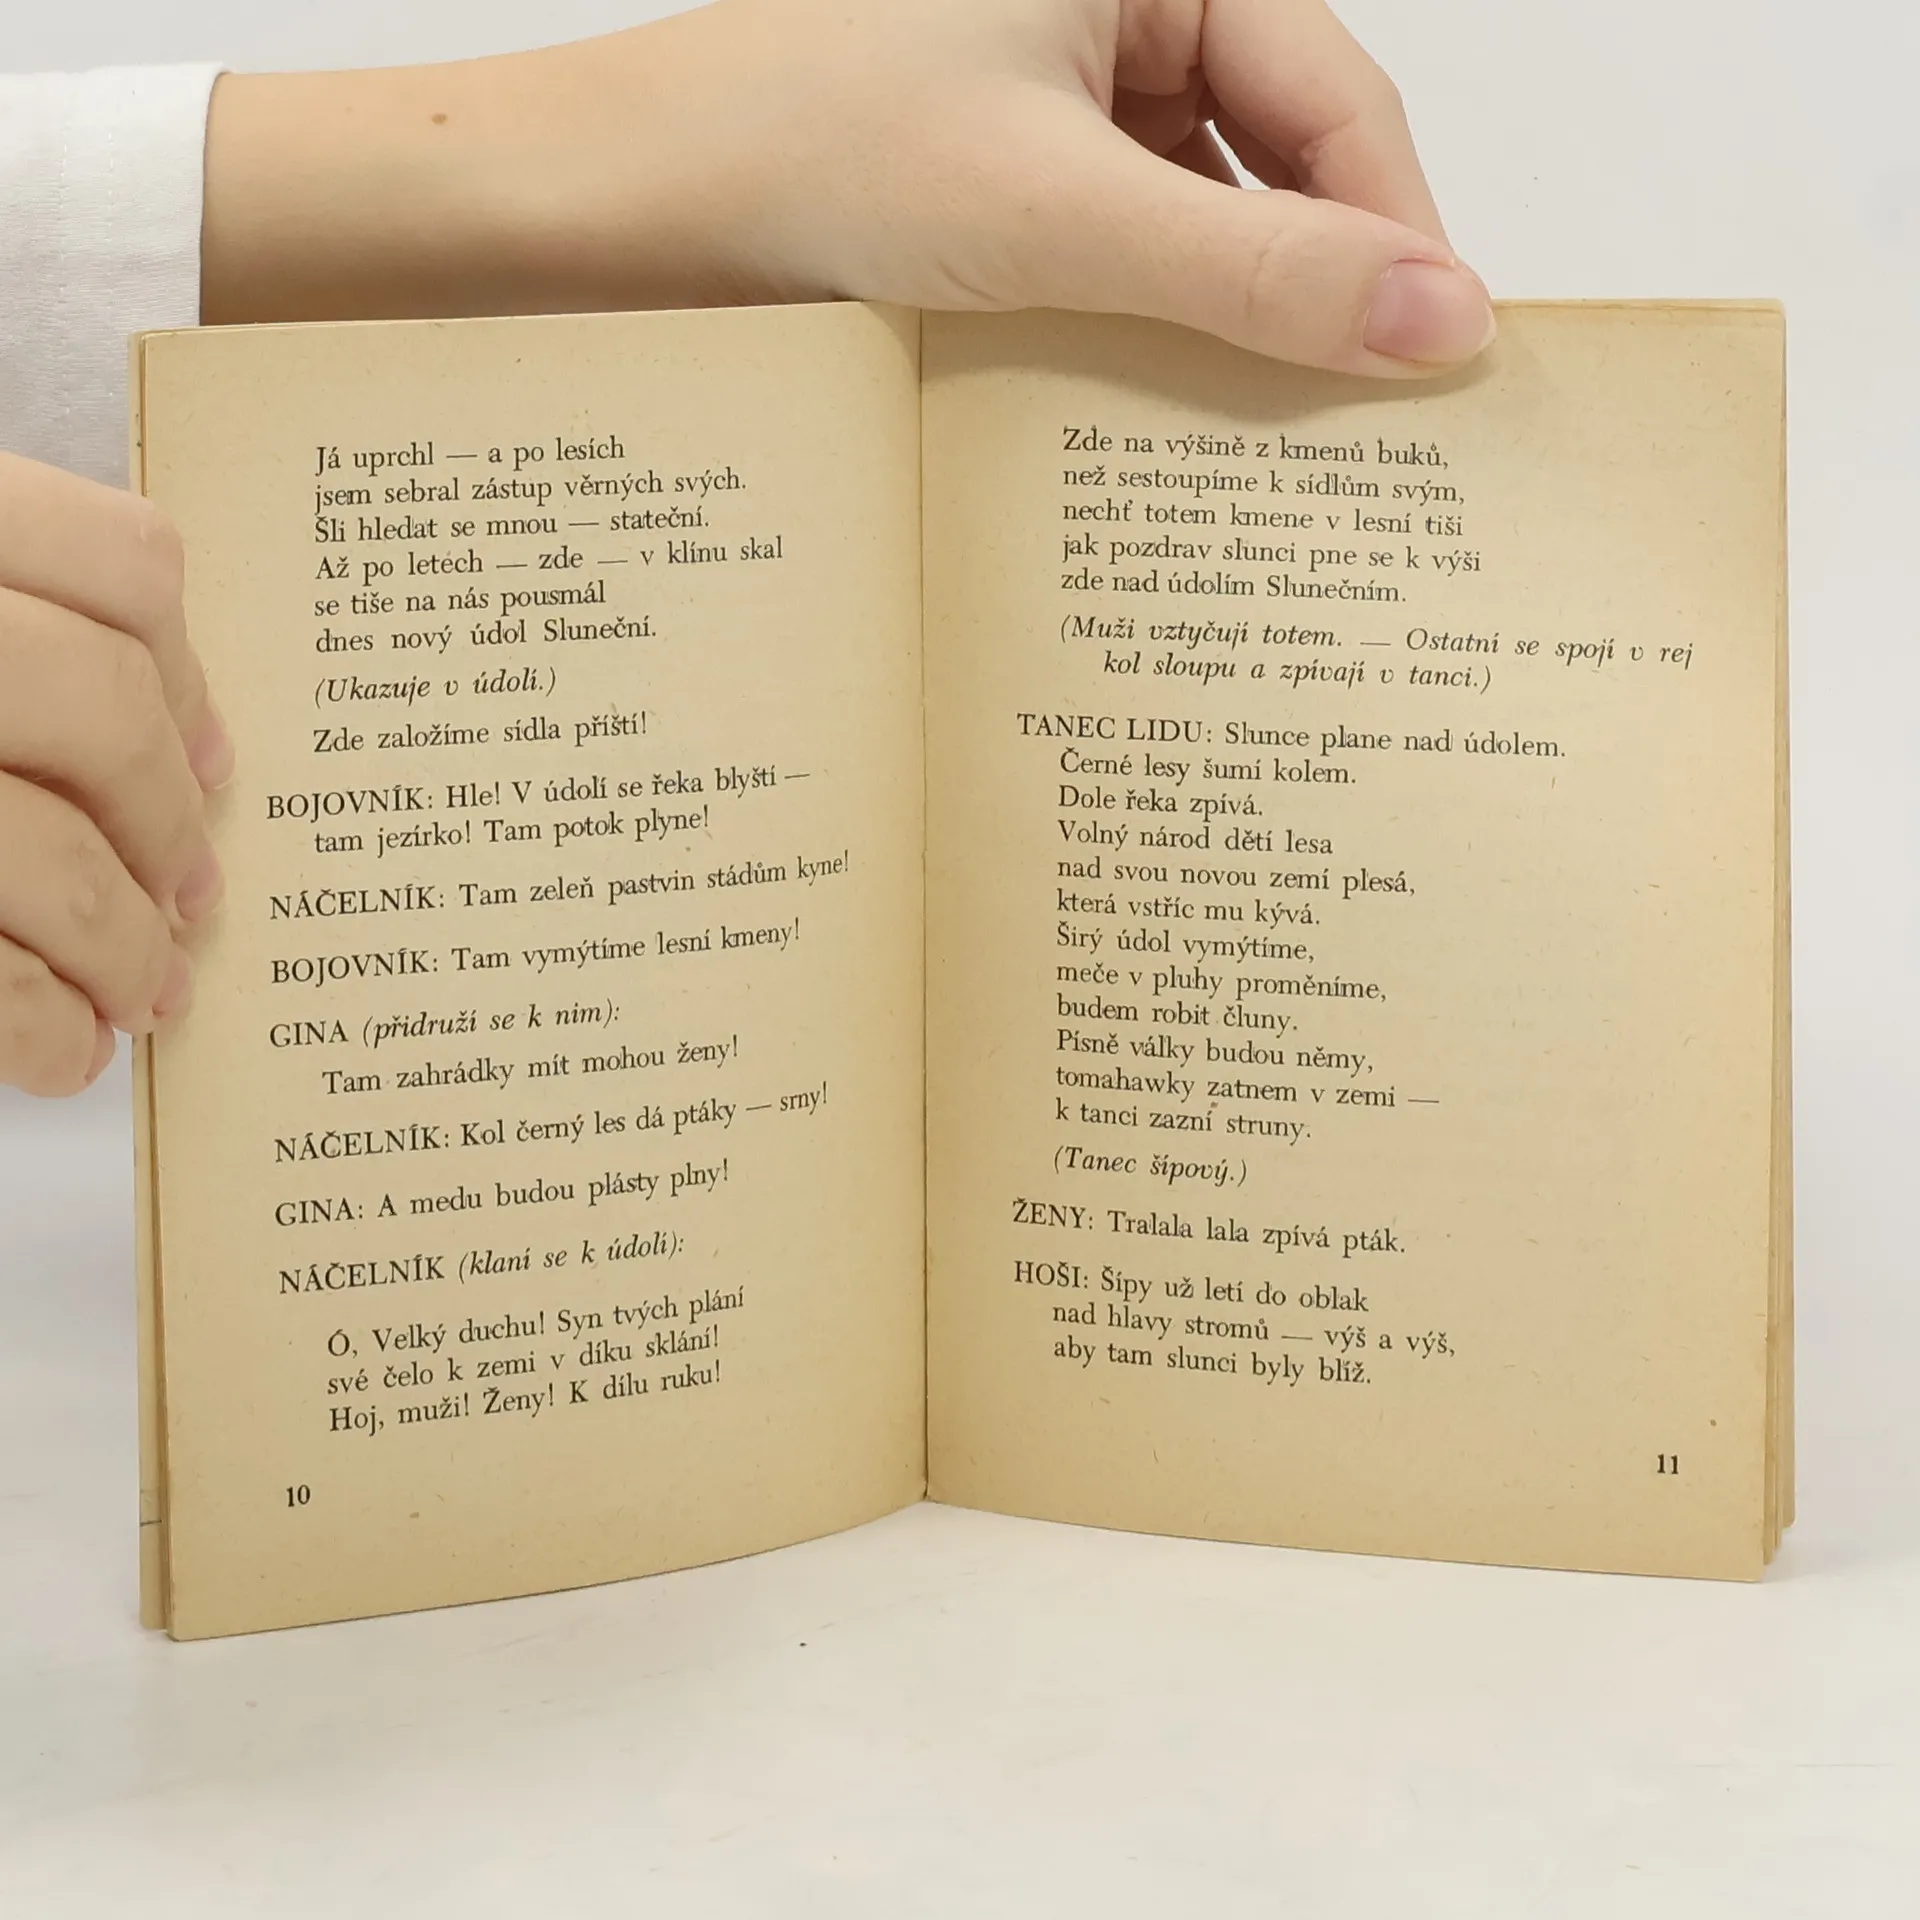 Já uprchl — a po lesích
jsem sebral zástup věrných svých.
Šli hledat se mnou — stateční.
Až po letech — zde — v klínu skal
se tiše na nás pousmál
dnes nový údol Sluneční.
(Ukazuje v údolí.)
Zde založíme sídla příští!
BOJOVNÍK: Hle! V údolí se řeka blyští —
tam jezírko! Tam potok plyne!
NÁČELNÍK: Tam zeleň pastvin stádům kyne!
BOJOVNÍK: Tam vymýtíme lesní kmeny!
GINA (přidruží se k nim):
Tam zahrádky mít mohou ženy!
NÁČELNÍK: Kol černý les dá ptáky — srny!
GINA: A medu budou plásty plny!
NÁČELNÍK (klaní se k údolí):
Ó, Velký duchu! Syn tvých plání
své čelo k zemi v díku sklání!
Hoj, muži! Ženy! K dílu ruku!
10
Zde na výšině z kmenů buků,
než sestoupíme k sídlům svým,
nechť totem kmene v lesní tiši
jak pozdrav slunci pne se k výši
zde nad údolím Slunečním.
(Muži vztyčují totem. — Ostatní se spojí v rej
kol sloupu a zpívají v tanci.)
TANEC LIDU: Slunce plane nad údolem.
Černé lesy šumí kolem.
Dole řeka zpívá.
Volný národ dětí lesa
nad svou novou zemí plesá,
která vstříc mu kývá.
Širý údol vymýtíme,
meče v pluhy proměníme,
budem robit čluny.
Písně války budou němy,
tomahawky zatnem v zemi —
k tanci zazní struny.
(Tanec šípový.)
ŽENY: Tralala lala zpívá pták.
HOŠI: Šípy už letí do oblak
nad hlavy stromů — výš a výš,
aby tam slunci byly blíž.
11